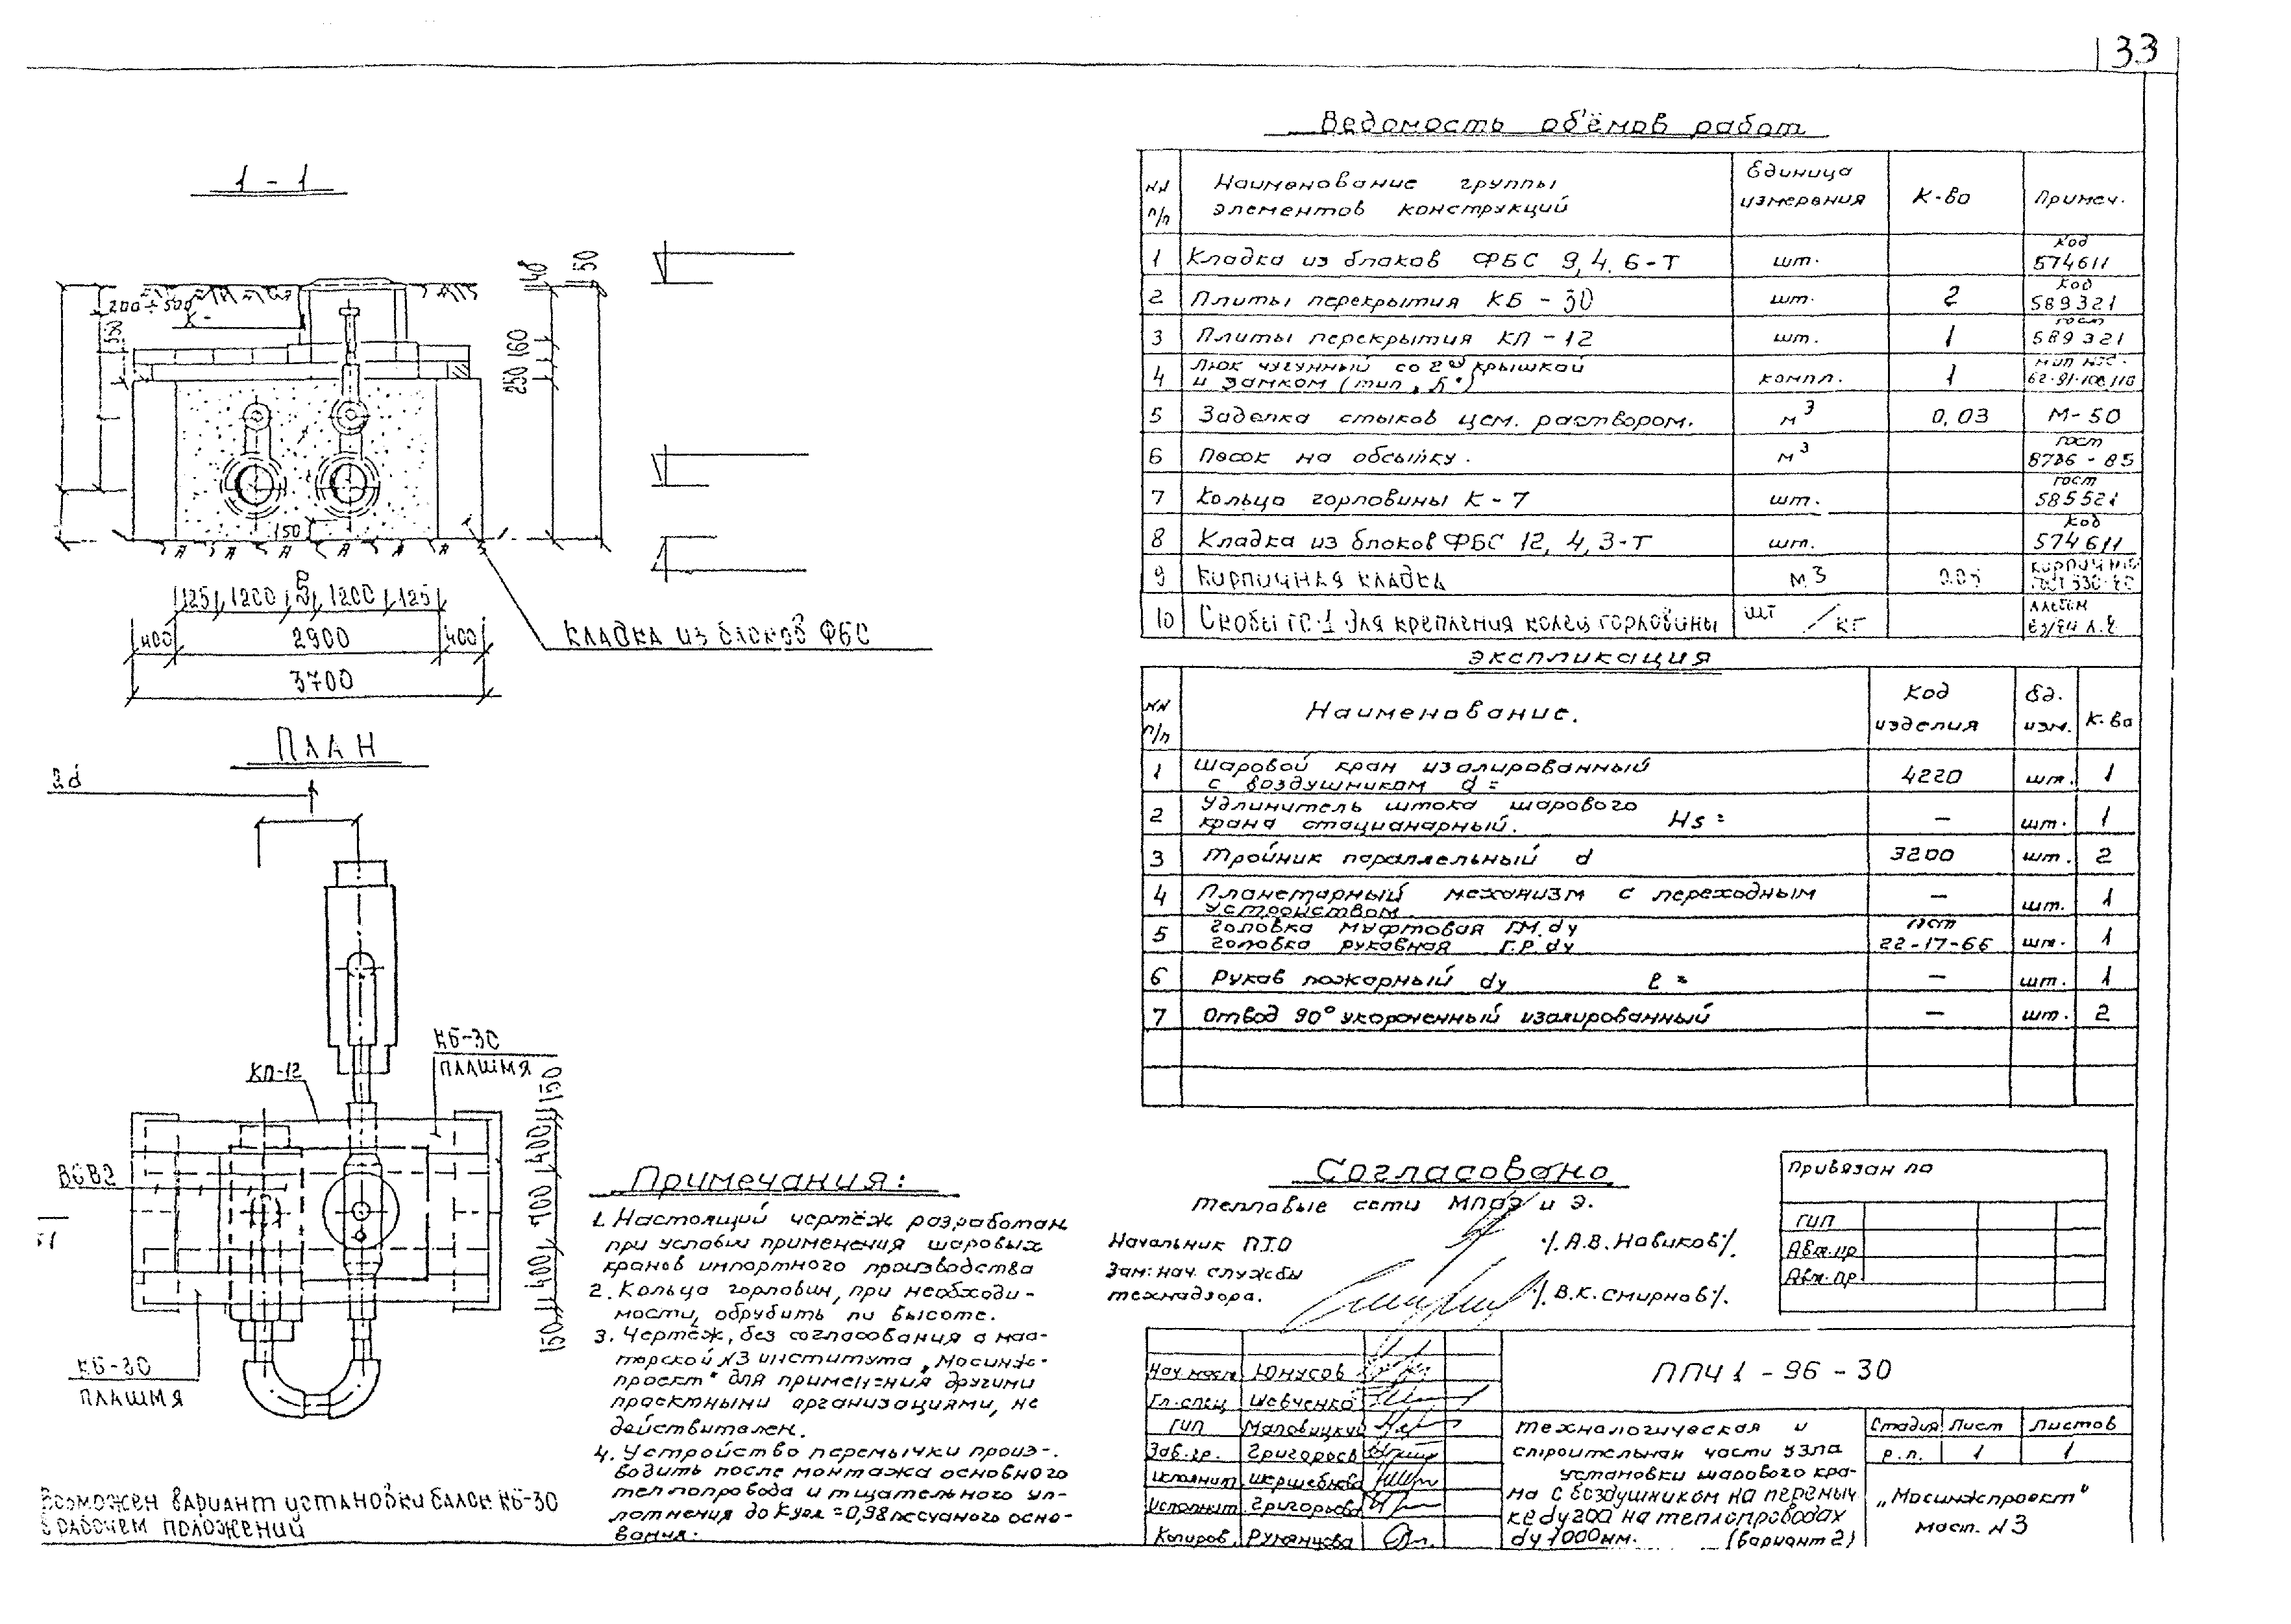 33
1 - 1
200÷500
К-
40
50
160
250
150
125 1200 1200 125
400 2900 400
3700
Кладка из блоков ФБС
План
2d
КБ-30
плашмя
КП-12
150 400 700 400 150
КБ-30
плашмя
Возможен вариант установки балок КБ-30
в рабочем положений
Примечания:
1. Настоящий чертёж разработан
при условии применения шаровых
кранов импортного производства
2. Кольца горловин, при необходи-
мости, обрубить по высоте.
3. Чертёж, без согласования с мас-
терской N3 института „Мосинж-
проект" для применения другими
проектными организациями, не
действителен.
4. Устройство перемычки произ-
водить после монтажа основного
теплопровода и тщательного уп-
лотнения до Купл =0,98 песчаного осно-
вания.
Ведомость об'ёмов работ
NN п/п | Наименование группы элементов конструкций | Единица измерения | К-во | Примеч.
1 Кладка из блоков ФБС 9,4.6-Т шт. Код 574611
2 Плиты перекрытия КБ - 30 шт. 2 Код 589321
3 Плиты перекрытия КП - 12 шт. 1 гост 589321
4 Люк чугунный со 2ой крышкой и замком (тип „Б") компл. 1
5 Заделка стыков цем. раствором. м3 0,03 М-50
6 Песок на обсыпку. м3 гост 8736 - 85
7 Кольцо горловины К - 7 шт. гост 585521
8 Кладка из блоков ФБС 12,4,3-Т шт. Код 574611
9 Кирпичная кладка м3
10 Скобы ГС-1 для крепления колец горловины шт / кг
Экспликация
NN п/п | Наименование. | Код изделия | Ед. изм. | К-во
1 Шаровой кран изолированный с воздушником d= 4220 шт. 1
2 Удлинитель штока шарового крана стационарный. Hs = — шт. 1
3 Тройник параллельный d 3200 шт. 2
4 Планетарный механизм с переходным устройством. — шт. 1
5 Головка муфтовая ГМ. dy Головка рукавная Г.Р. dy гост 22-17-66 шт. 1
6 Рукав пожарный dy ℓ = — шт. 1
7 Отвод 90° укороченный изолированный — шт. 2
Согласовано
Тепловые сети МПОЭ и Э.
Начальник П.Т.О /.А.В. Новиков/.
Зам. нач. службы
технадзора. /.В.К. Смирнов/.
Привязан по
ГИП
Авт. пр
Авт. пр.
Нач. маст. Юнусов
Гл. спец Шевченко
ГИП Маловицкий
Зав. гр.
Исполнит
Исполнит Григорьева
Копиров. Румянцева
ППЧ 1 - 96 - 30
Технологическая и
строительная части узла
установки шарового кра-
на с воздушником на перемыч
ке dy200 на теплопроводах
dy 1000мм. (вариант 2)
Стадия Лист Листов
р.п. 1 1
„Мосинжпроект"
маст. N3